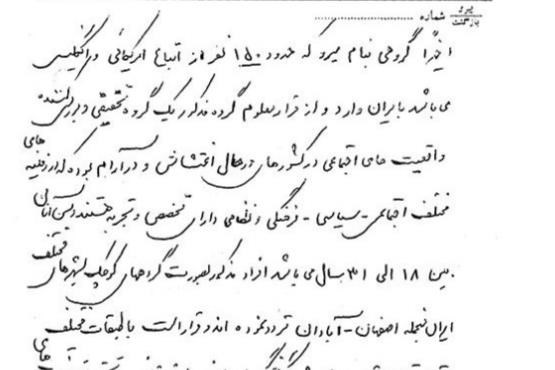 پیرو
بازگشت
شماره
اخیراً گروهی بنام میرو که حدود ۱۵۰ نفر از اتباع امریکائی و انگلیس
می باشد بایران وارد و از قرار معلوم گروه مذکور یک گروه تحقیقی و بررسی کننده
واقعیت های اجتماعی در کشورهای در حال اغتشاش و ناآرام بوده که در زمینه های
مختلف اجتماعی - سیاسی - فرهنگی و نظامی دارای تخصص و تجربه هستند و سن آنان
بین ۱۸ الی ۳۱ سال می باشد افراد مذکور بصورت گروههای کوچک بشهرهای مختلف
ایران منجمله اصفهان - آبادان تردد نموده اند و قرار است با طبقات مختلف